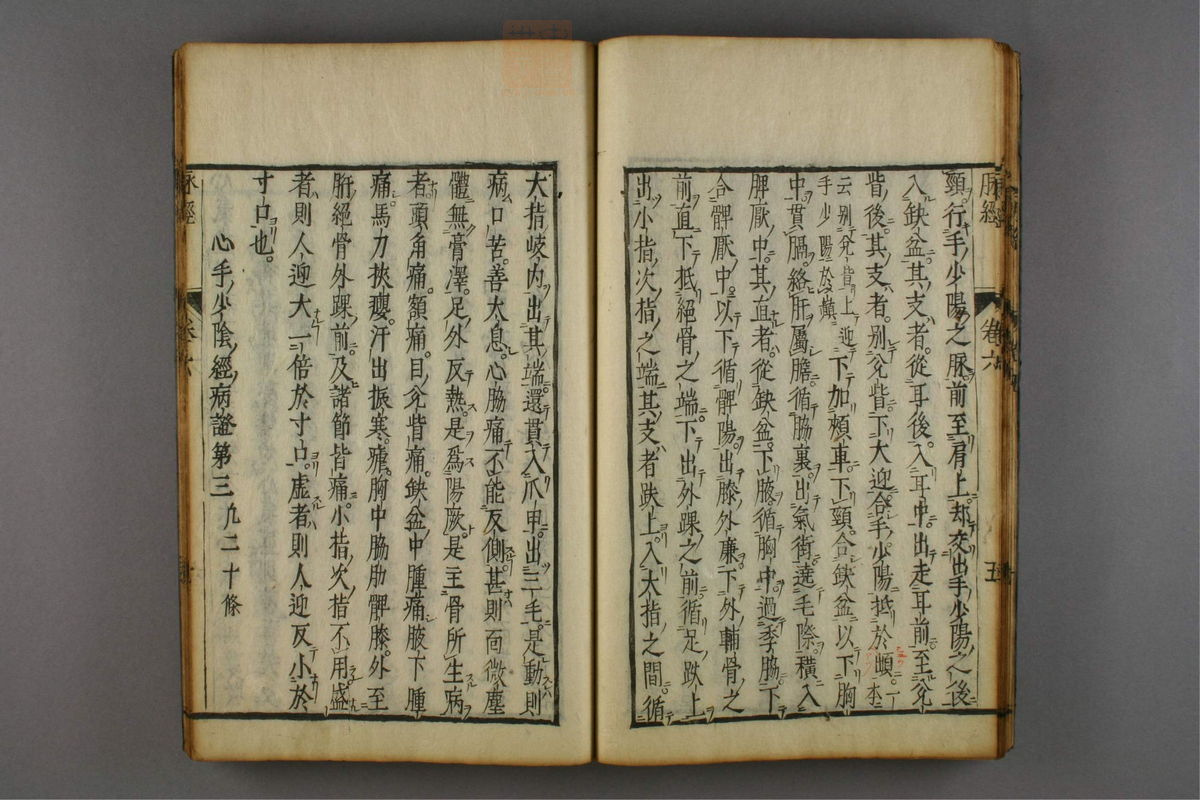 脉經
卷六
五
頸行手少陽之脉前至肩上却交出手少陽之後
入缺盆其支者從耳後入耳中出走耳前至兊
眥後其支者別兊眥下大迎合手少陽抵於䪼一本
云别兊眥上迎
手少陽於巔
下加頰車下頸合缺盆以下胸
中貫膈絡肝屬膽循脇裏出氣街遶毛際橫入
髀厭中其直者從缺盆下腋循胸中過季脇下
合髀厭中以下循髀陽出膝外廉下外輔骨之
前直下抵絕骨之端下出外踝之前循足跗上
出小指次指之端其支者跗上入大指之間循
大指岐内出其端還貫入爪甲出三毛是動則
病口苦善太息心脇痛不能反側甚則面微塵
體無膏澤足外反熱是爲陽厥是主骨所生病
者頭角痛頷痛目兊眥痛缺盆中腫痛腋下腫
痛馬刀挾癭汗出振寒瘧胸中脇肋髀膝外至
胻絕骨外踝前及諸節皆痛小指次指不用盛
者則人迎大一倍於寸口虛者則人迎反小於
寸口也
心手少陰經病證第三 凡二十條
脉經
卷六